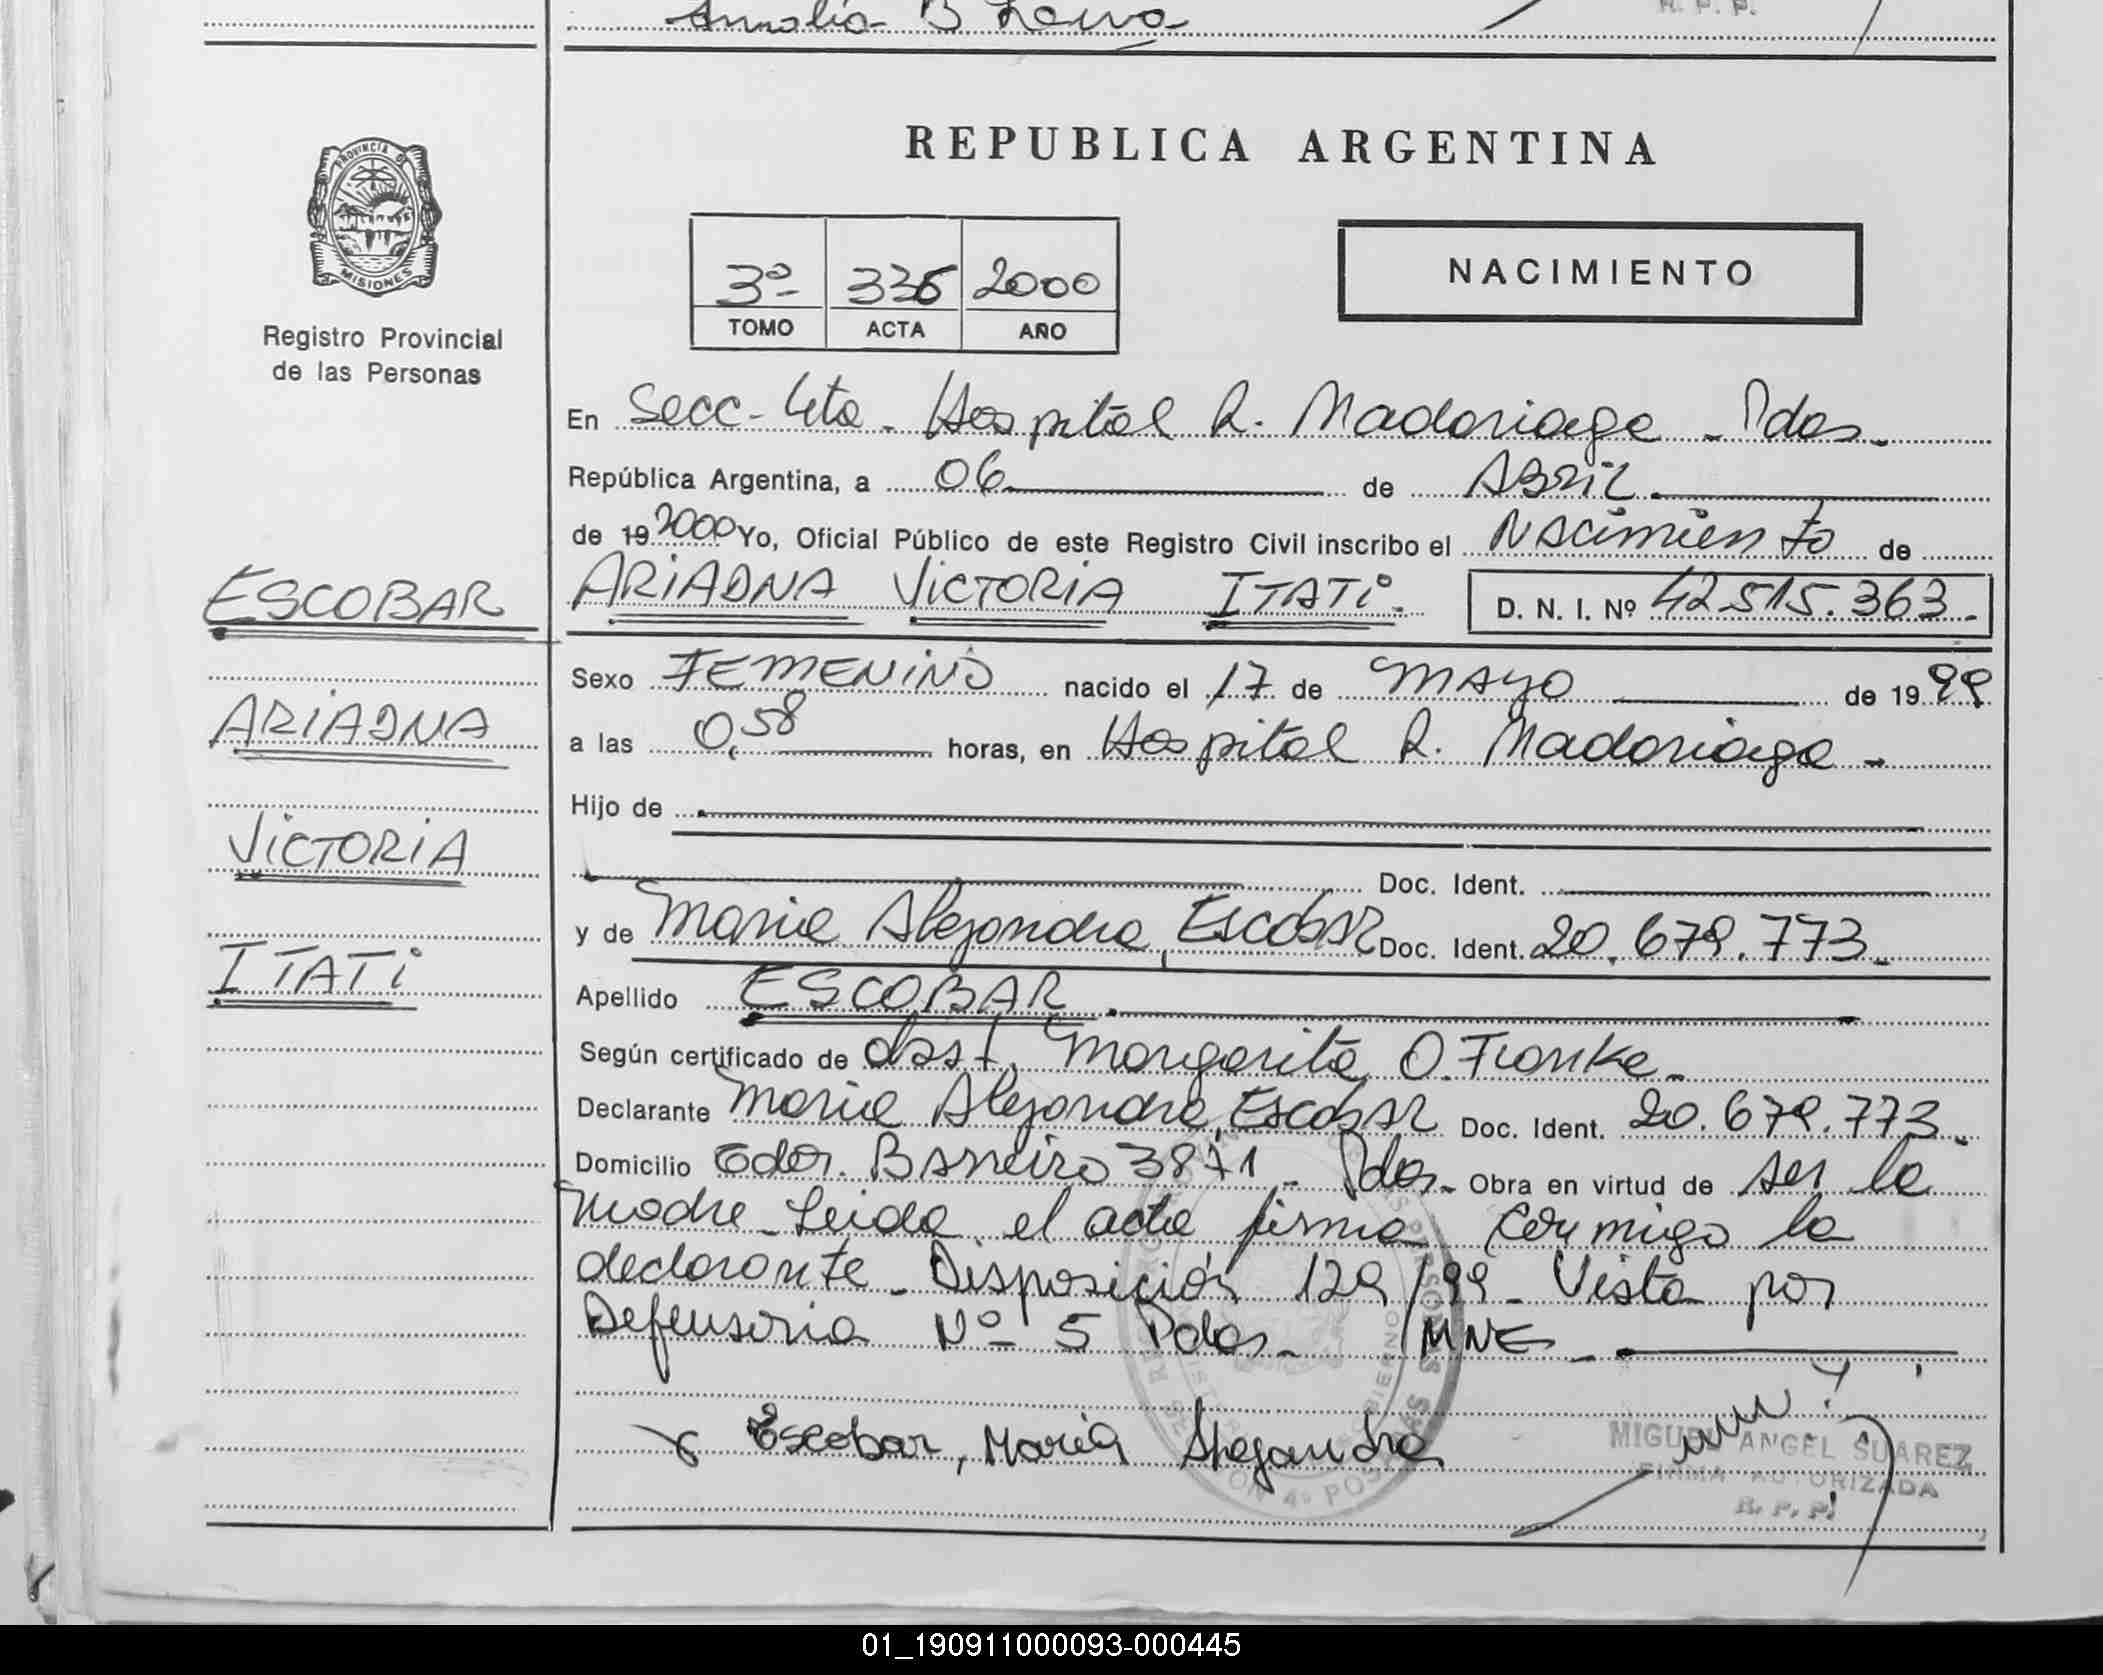 Amalia B Leiva
R. P. P.
REPUBLICA ARGENTINA
PROVINCIA D
MISIONES
Registro Provincial
de las Personas
3º 336 2000
TOMO ACTA AÑO
NACIMIENTO
En Secc- 4ta - Hospital R. Madariaga - Pdas.
República Argentina, a 06 de Abril
de 19 2000 Yo, Oficial Público de este Registro Civil inscribo el Nacimiento de
ESCOBAR
ARIADNA VICTORIA ITATí. D. N. I. Nº 42.515.363.
Sexo FEMENINO nacido el 17 de mayo de 1999
ARIADNA
a las 0,58 horas, en Hospital R. Madariaga -
Hijo de
VICTORIA
Doc. Ident.
y de Maria Alejandra Escobar Doc. Ident. 20.679.773.
ITATi
Apellido ESCOBAR
Según certificado de obst. Margarita O. Franke.
Declarante Maria Alejandra Escobar Doc. Ident. 20.679.773.
Domicilio Cdor. Barreiro 3871 - Pdas. Obra en virtud de ser la
madre - Leida el acta firma conmigo la
declarante - Disposición 129/99 - Vista por
Defensoria Nº 5 Pdas. MNE
Escobar, María Alejandra
MIGUEL ANGEL SUAREZ
FIRMA AUTORIZADA
R. P. P.
01_190911000093-000445